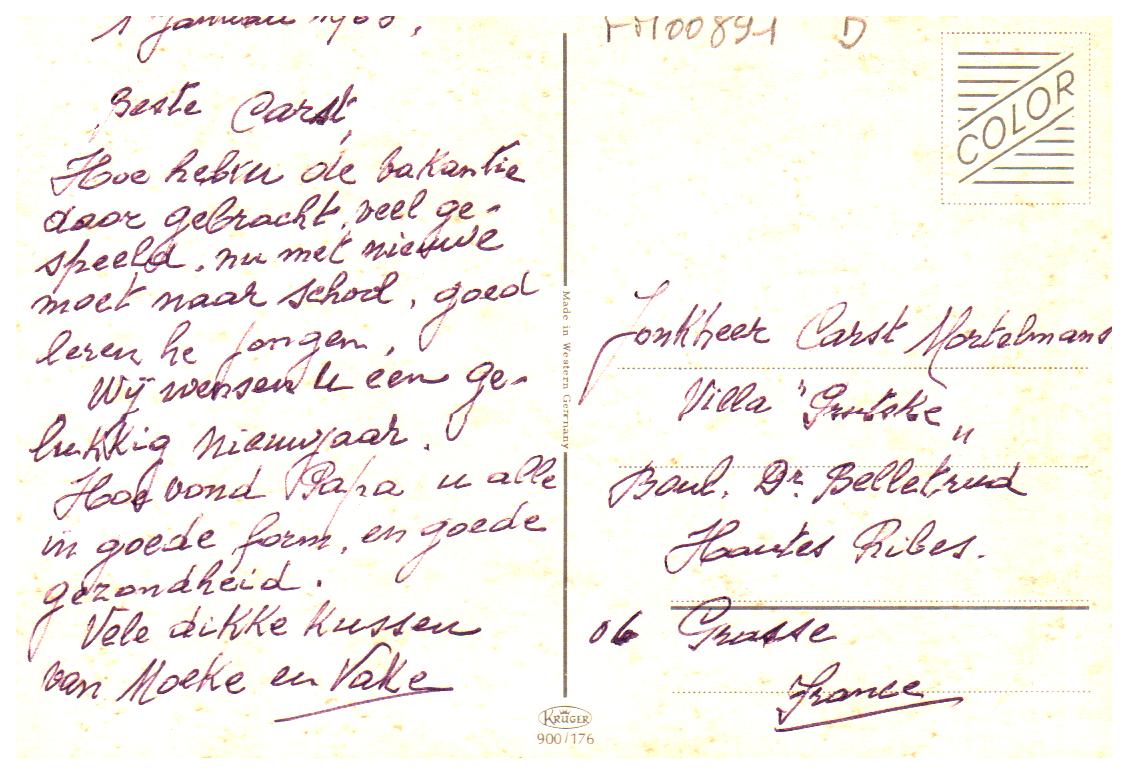 1 Januari 1965,
Beste Carst,
Hoe heb u de vakantie
daar gebracht, veel ge-
speeld, nu met nieuwe
moet naar school, goed
leren he jongen,
Wij wensen U een ge-
lukkig nieuwjaar.
Hoe vond Papa u alle
in goede form, en goede
gezondheid.
Vele dikke kussen
van Moeke en Vake
Made in Western Germany
KRÜGER
900/176
00891 D
COLOR
Jonkheer Carst Mortelmans
Villa "
Boul. Dr. Belletrud
Hautes Ribes.
06 Grasse
France